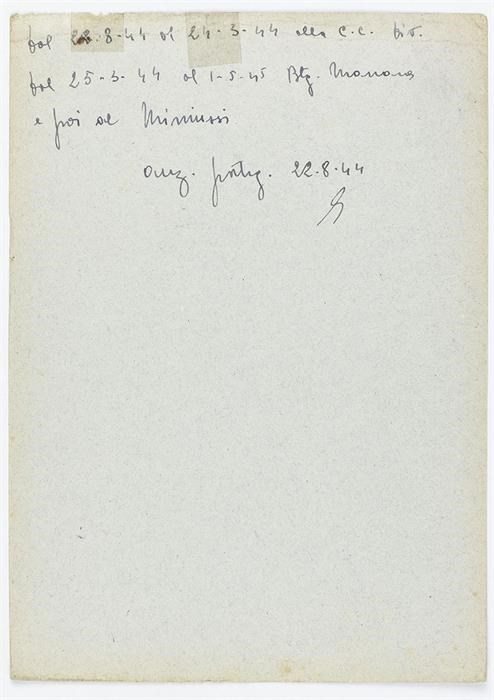 Dal 22-8-44 al 24-3-44 alla C.C. Div.
Dal 25-3-44 al 1-5-45 Btg. Manara
e poi al Miniussi
anz. partig. 22-8-44